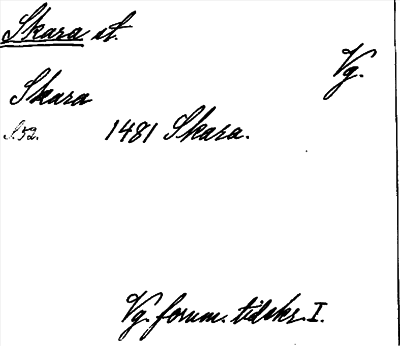 Skara st.
Vg.
Skara
S. 52. 1481 Skara.
Vg. fornm. tidskr. I.